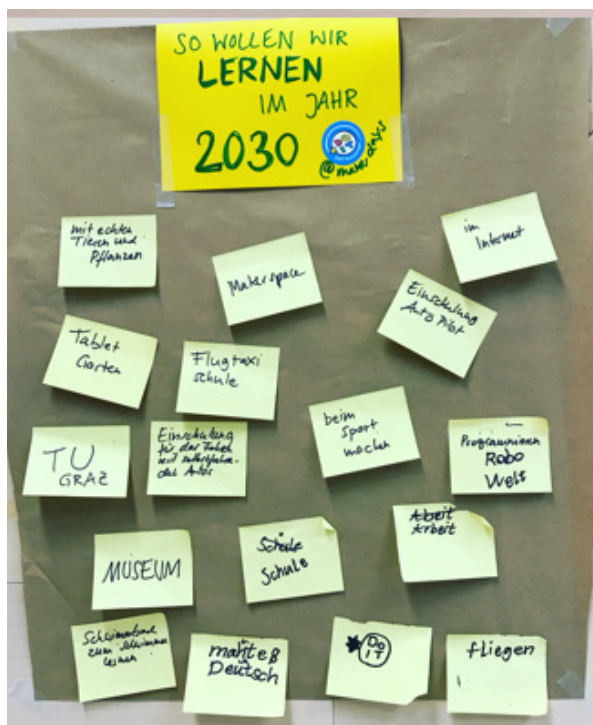 SO WOLLEN WIR
LERNEN
IM JAHR
2030
mit echten
Tieren und
Pflanzen
Makerspace
im
Internet
Einschulung
Auto Pilot
Tablet
Garten
Flugtaxi
schule
beim
Sport
machen
TU
GRAZ
Einschulung
für das Fahren
mit selbstfahren-
den Autos
Programmieren
Robo
Welt
MUSEUM
Schule
Schule
Arbeit
Arbeit
Schwimmbad
zum Schwimmen
lernen
Deutsch
DO
IT
fliegen